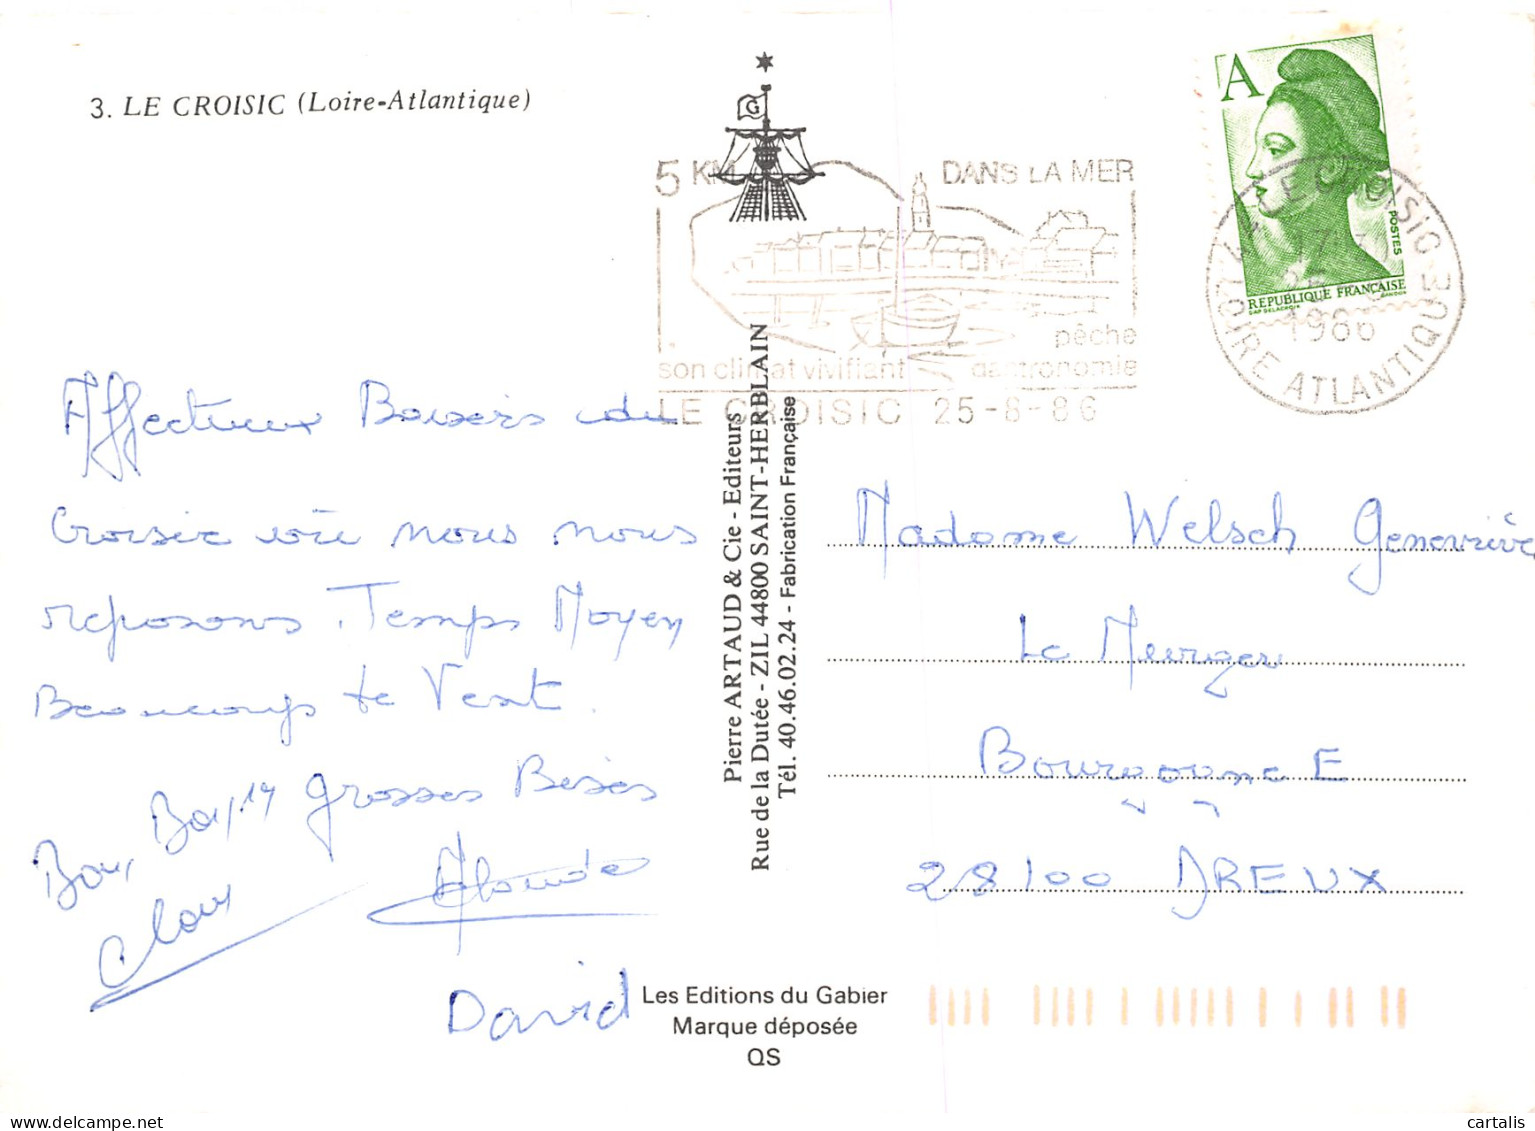 3. LE CROISIC (Loire-Atlantique)
G
5 KM DANS LA MER
pêche
son climat vivifiant gastronomie
LE CROISIC 25-8-86
A
POSTES
REPUBLIQUE FRANÇAISE
DAP DELACROIX
LE CROISIC
LOIRE ATLANTIQUE
1986
Affectueux Baisers du
Croisic où nous nous
reposons. Temps Moyen
Beaucoup de Vent.
grosses Bises
David
Pierre ARTAUD & Cie - Editeurs
Rue de la Dutée - ZIL 44800 SAINT-HERBLAIN
Tél. 40.46.02.24 - Fabrication Française
Madame Welsch Geneviève
Le Meurger
BourgogneE
28100 DREUX
Les Editions du Gabier
Marque déposée
QS
cartalis